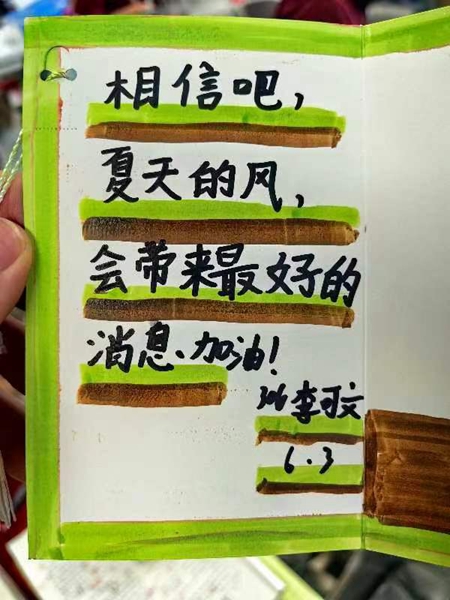 相信吧，
夏天的风，
会带来最好的
消息、加油！
306李可文
6.3